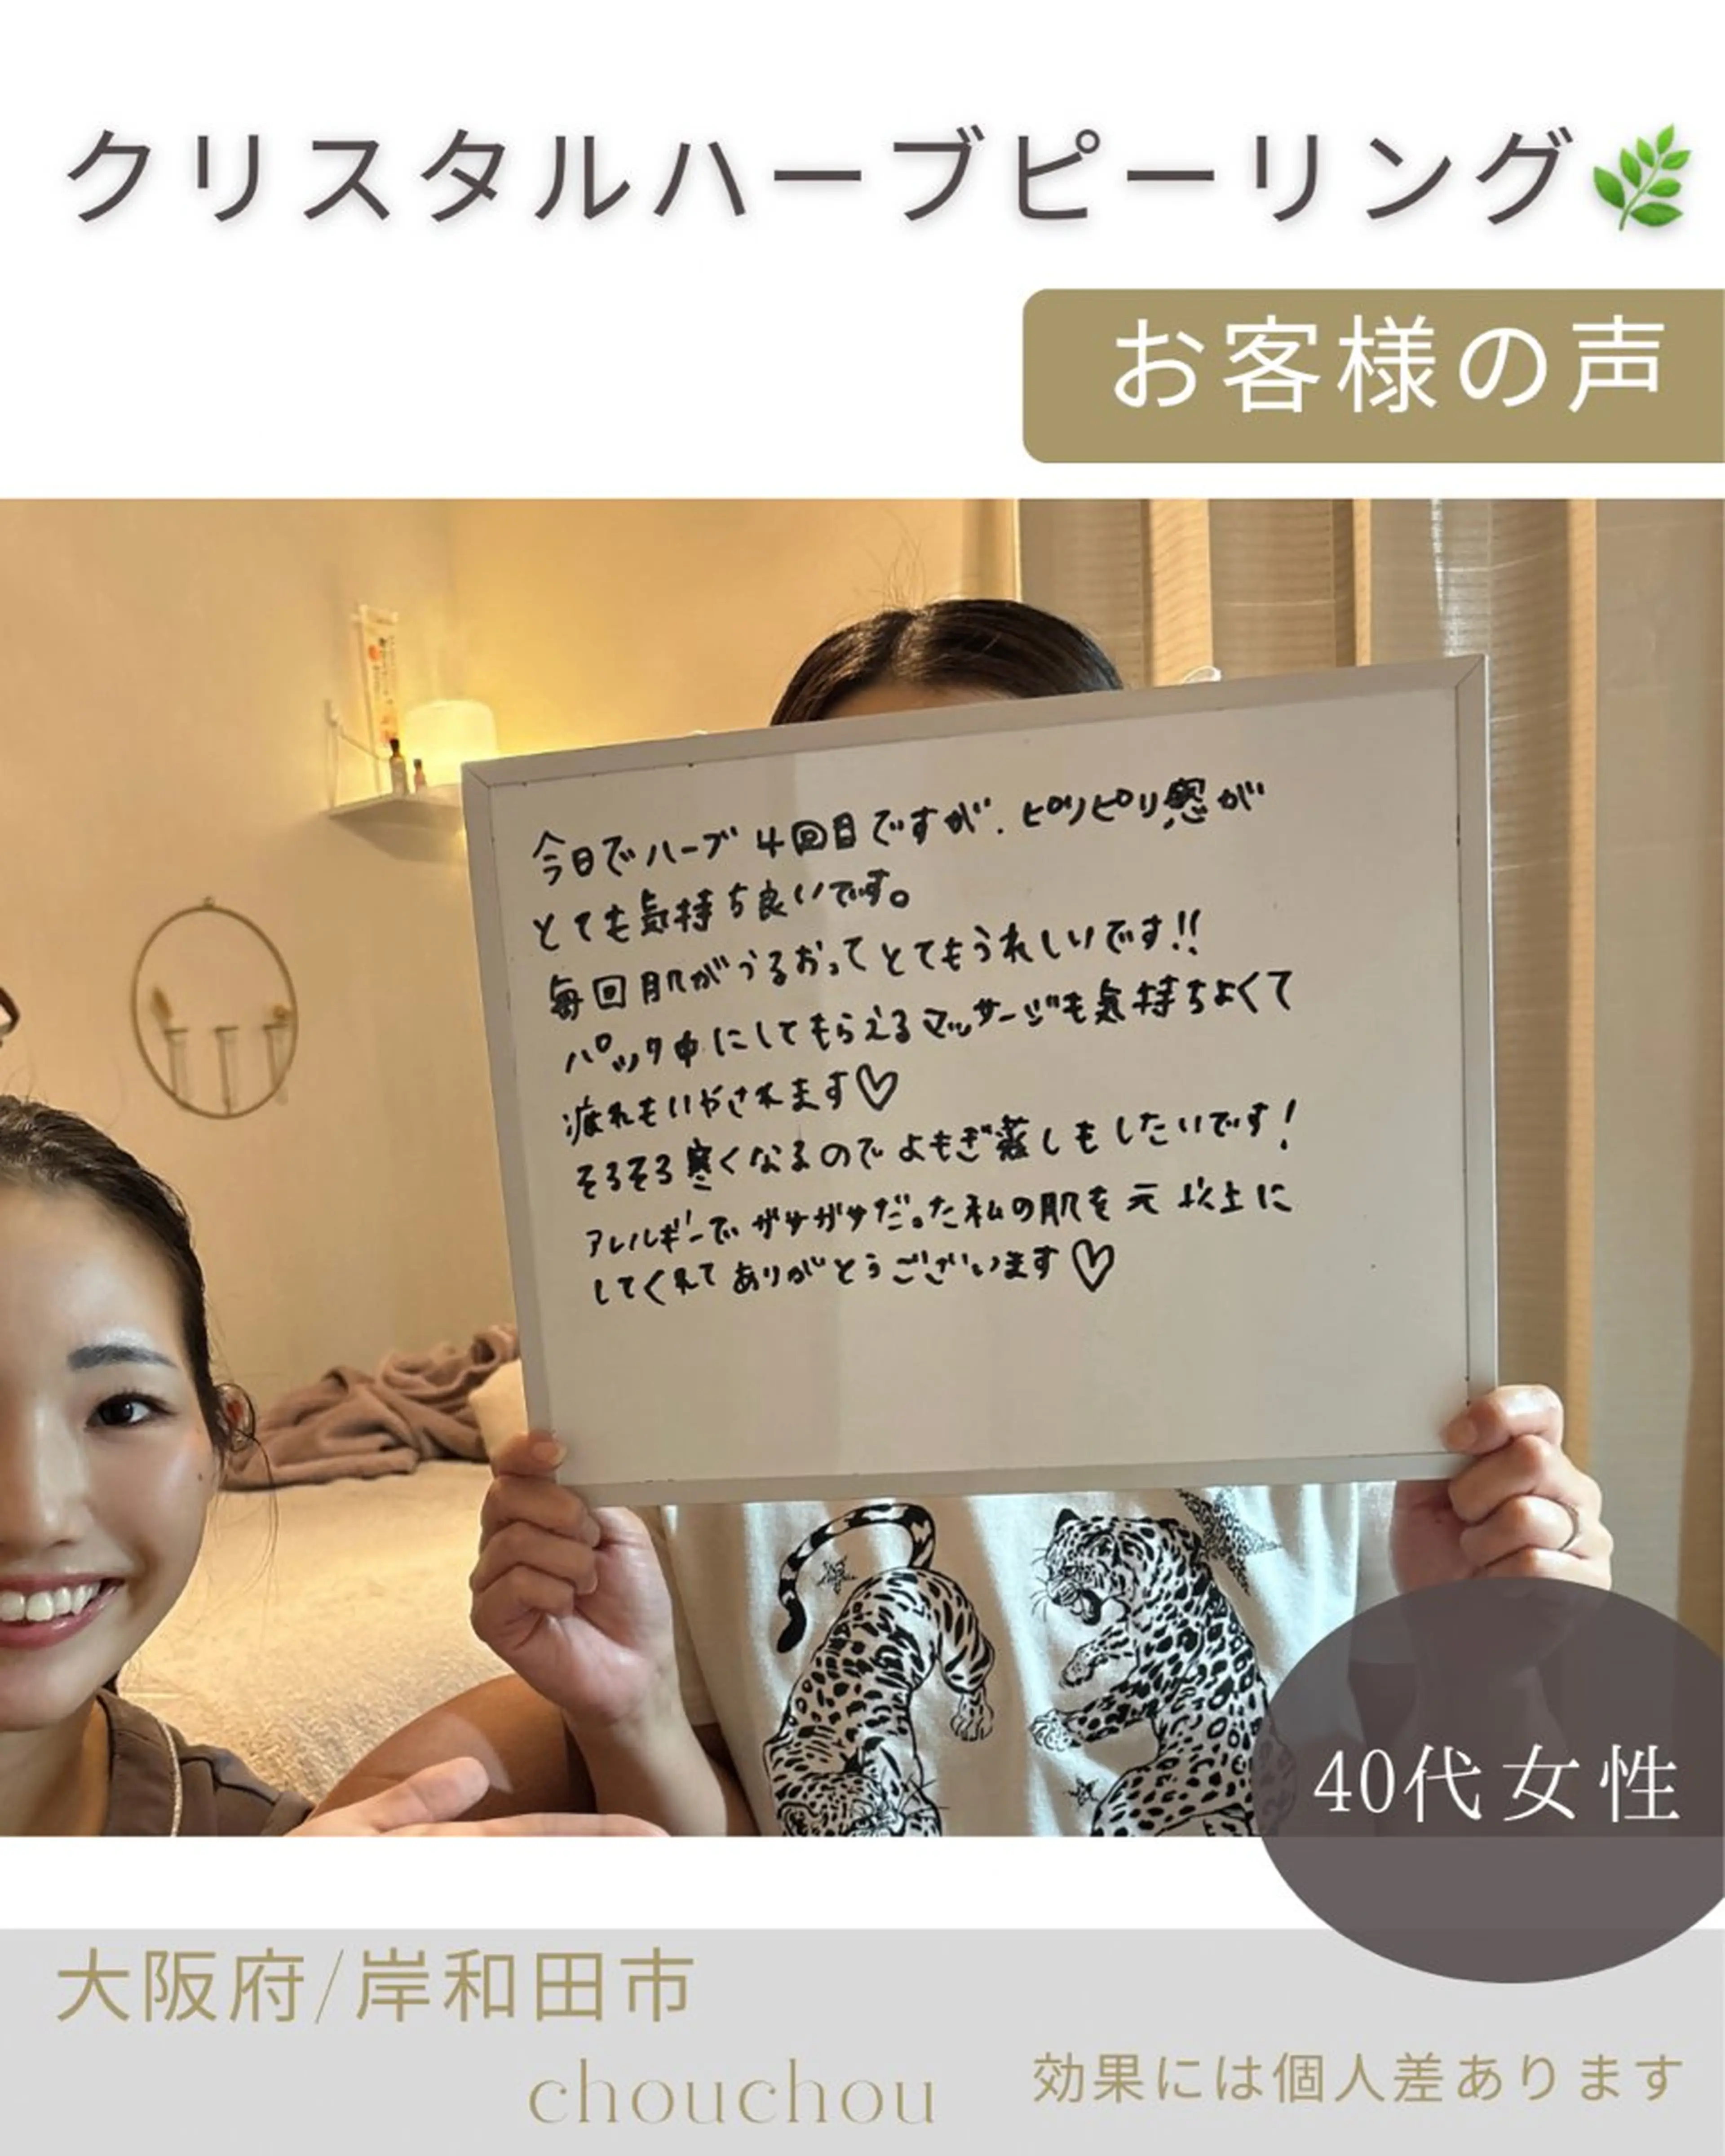 クリスタルハーブピーリング🌿
お客様の声
今日でハーブ4回目ですが、ピリピリ感が
とても気持ち良いです。
毎回肌がうるおってとてもうれしいです!!
パック中にしてもらえるマッサージも気持ちよくて
疲れもいやされます♡
そろそろ寒くなるのでよもぎ蒸しもしたいです!
アレルギーでガサガサだった私の肌を元以上に
してくれてありがとうございます♡
40代女性
大阪府/岸和田市
chouchou
効果には個人差あります